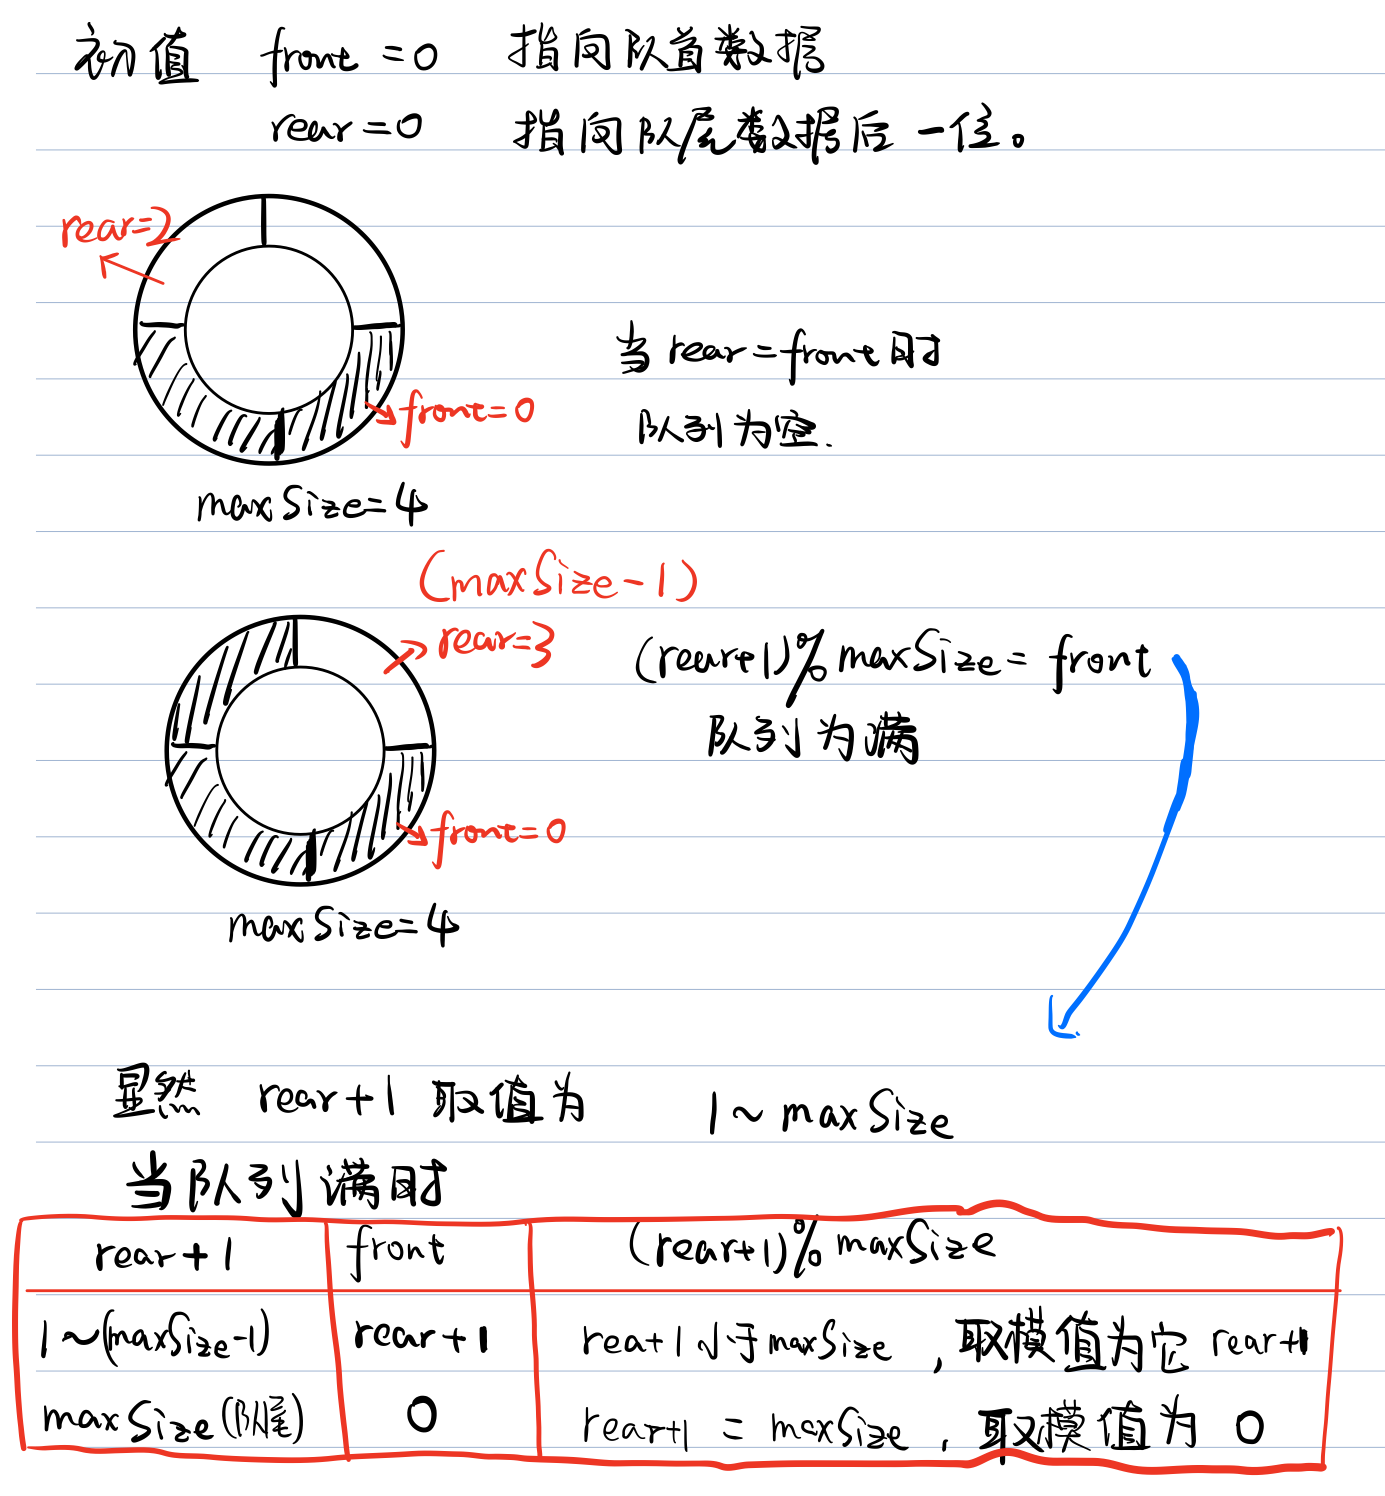 初值 front =0 指向队首数据
rear=0 指向队尾数据后一位。
rear=2
当 rear=front时
front=0
队列为空.
maxSize=4
(maxSize-1)
rear=3
(rear+1)%maxSize= front
队列为满
front=0
maxSize=4
显然 rear+1 取值为 1~maxSize
当队列满时
rear+1 front (rear+1)%maxSize
1~(maxSize-1) rear+1 rea+1小于maxSize ,取模值为它 rear+1
maxSize(队尾) 0 rear+1 = maxSize , 取模值为 0